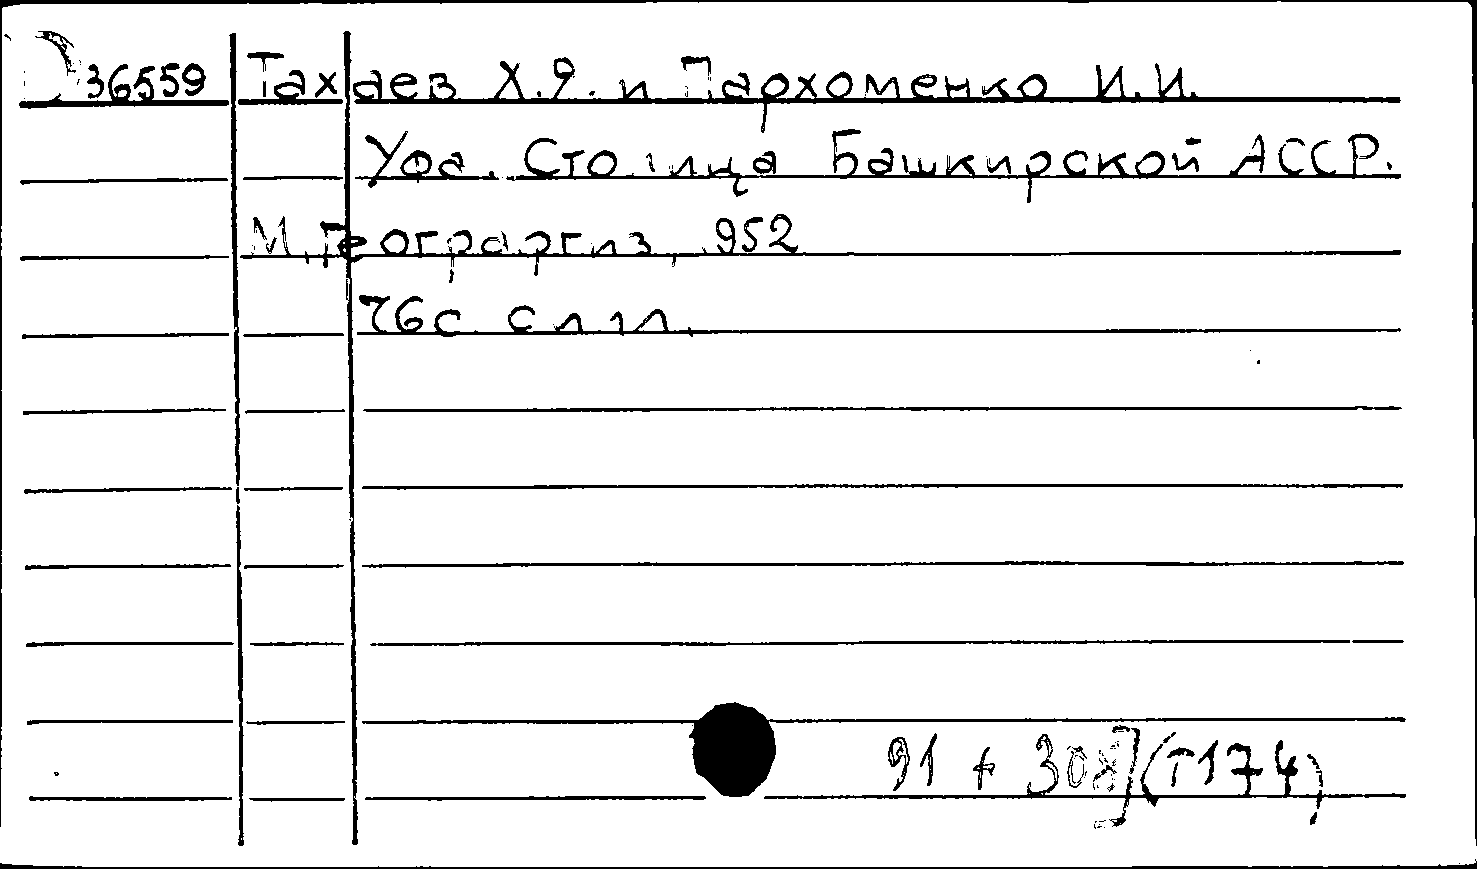 D 36559 Тахаев Х.Я. и Пархоменко И.И.
Уфа. Столица Башкирской АССР.
М., Географгиз, 952
76с. с илл.
91 + 308] (Т174)